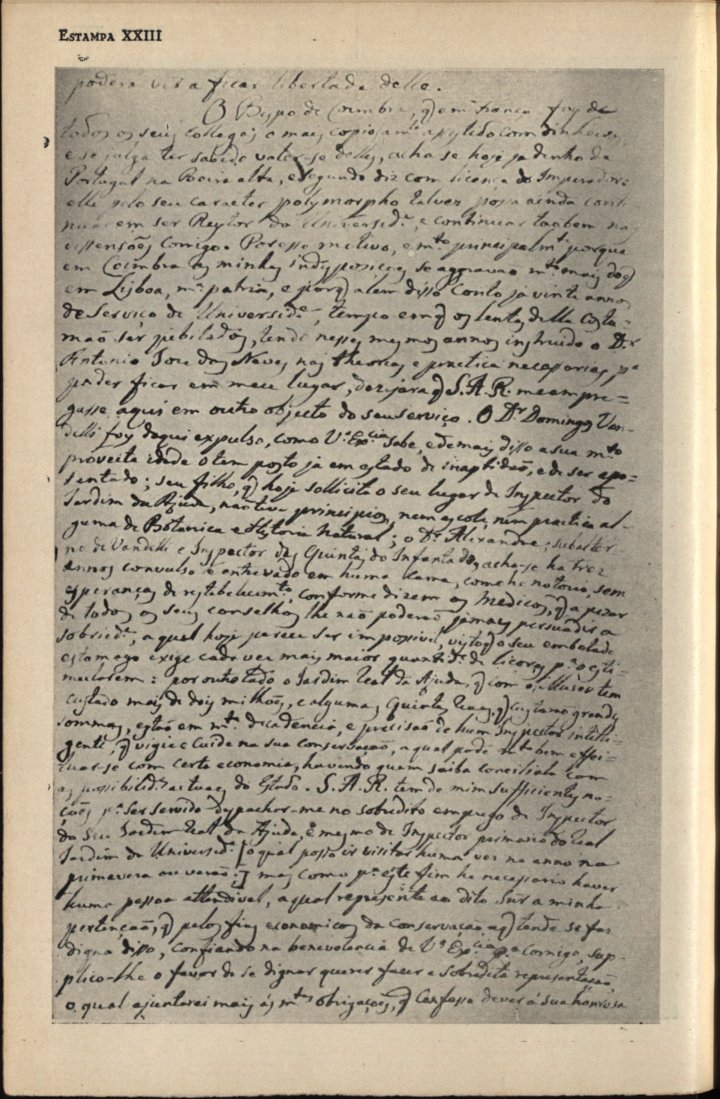 ESTAMPA XXIII
poderá vir a ficar libertada delle.
O Bispo de Coimbra, q̃ em França foy de
todos os seus collegas o mais copiosam.te apystado com dinheiros,
e se julga ter sabido valer-se delles, acha-se hoje ja dentro de
Portugal na Beira alta, e segundo diz com licença do Imperador:
elle pelo seu caracter polymorpho talvez possa ainda conti
nuar em ser Reytor da Universid.e, e continuar taobem nas
dissensões comigo. Por esse motivo, e m.to principalm.te porque
em Coimbra as minhas indisposições se aggravao m.to mais do q̃
em Lisboa, m.a patria, e porq̃ alem disso conto já vinte annos
de Serviço da Universid.e, tempo em q̃ os lentes della costu-
mão ser jubilados, tendo nesses mesmos annos instruido o D.r
Antonio José das Neves nas theorias e practica necessarias p.a
poder ficar em meu lugar, dezejara q̃ S.A.R. me empre-
gasse aqui em outro objecto do seu serviço. O D.r Domingos Van-
delli foy daqui expulso, como V.a Ex.cia sabe, e de mais disso a sua m.to
proveita idade o tem posto já em estado de inaptidão, e de ser apo-
sentado; seu filho, q̃ hoje sollicita o seu lugar de Inspector do
Jardim da Ajuda, não teve principios, nem escola, nem practica al-
guma de Botanica e Historia Natural; o D.r Alexandre, substi
de Vandelli e Inspector das Quintas do Infantado, acha-se ha trez
annos convulso e entrevado em huma cama, como he notorio, sem
esperanças de restabelecim.to, conforme dizem os Medicos, q̃ a pezar
de todos os seus conselhos lhe não poderão jamais persuadir a
sobried.e, a qual hoje parece ser impossivel, visto q̃ o seu embotado
estomago exige cada vez mais maior quantid.e de licores p.a o esti-
mularem: por outro lado o Jardim Real da Ajuda, q̃ com o Museo tem
custado mais de dois milhões, e algumas Quintas Reaes, q̃ custarao grandes
sommas, estão em m.ta decadencia, e precisão de hum Inspector intelli-
gente, q̃ vigie e cuide na sua conservação, a qual póde taobem effei-
tuar-se com certa economia, havendo quem saiba concilia-la com
as possibilid.es actuaes do Estado. S.A.R. tem de mim sufficientes no-
ções p.a ser servido despachar-me no sobredito emprego de Inspector
do Seu Jardim Real da Ajuda, e mesmo de Inspector primario do Real
Jardim da Universid.e [o qual posso ir visitar huma vez no anno na
primavera ou verão:] mas como p.a este fim he necessario haver
huma pessoa attendivel, a qual represente ao dito Snr a minha
pertenção, q̃ pelos fins economicos da conservação, a q̃ tende se faz
digna disso, confiando na benevolencia de V.a Ex.cia p.a comigo, sup-
plico-lhe o favor de se dignar querer fazer a sobredita representação,
o qual ajuntarei mais ás m.tas obrigações, q̃ confesso dever á sua honrosa